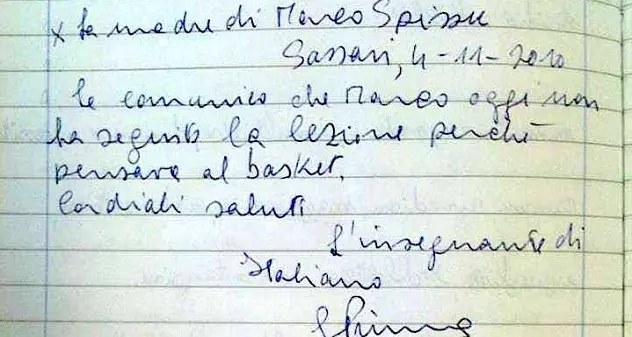 x la madre di Marco Spissu
Sassari, 4-11-2010
le comunico che Marco oggi non
ha seguito la lezione perché
pensava al basket.
Cordiali saluti
L'insegnante di
Italiano